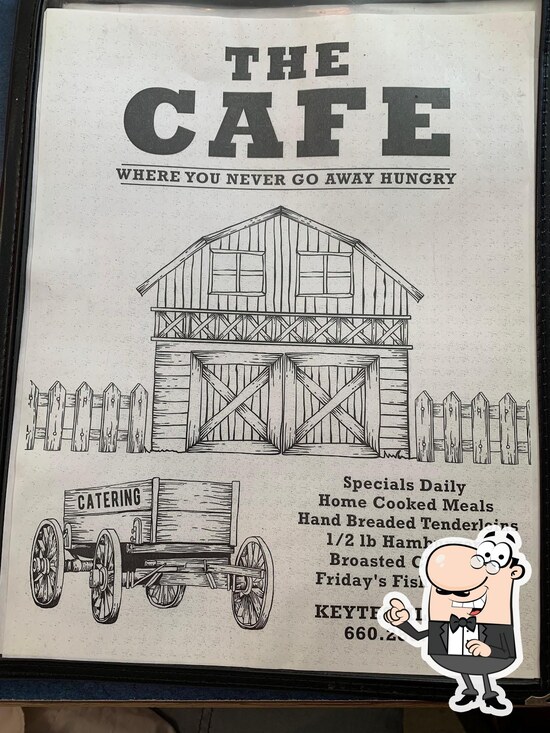 THE
CAFE
WHERE YOU NEVER GO AWAY HUNGRY
CATERING
Specials Daily
Home Cooked Meals
Hand Breaded Tenderloins
1/2 lb
Broasted
Friday's
660.